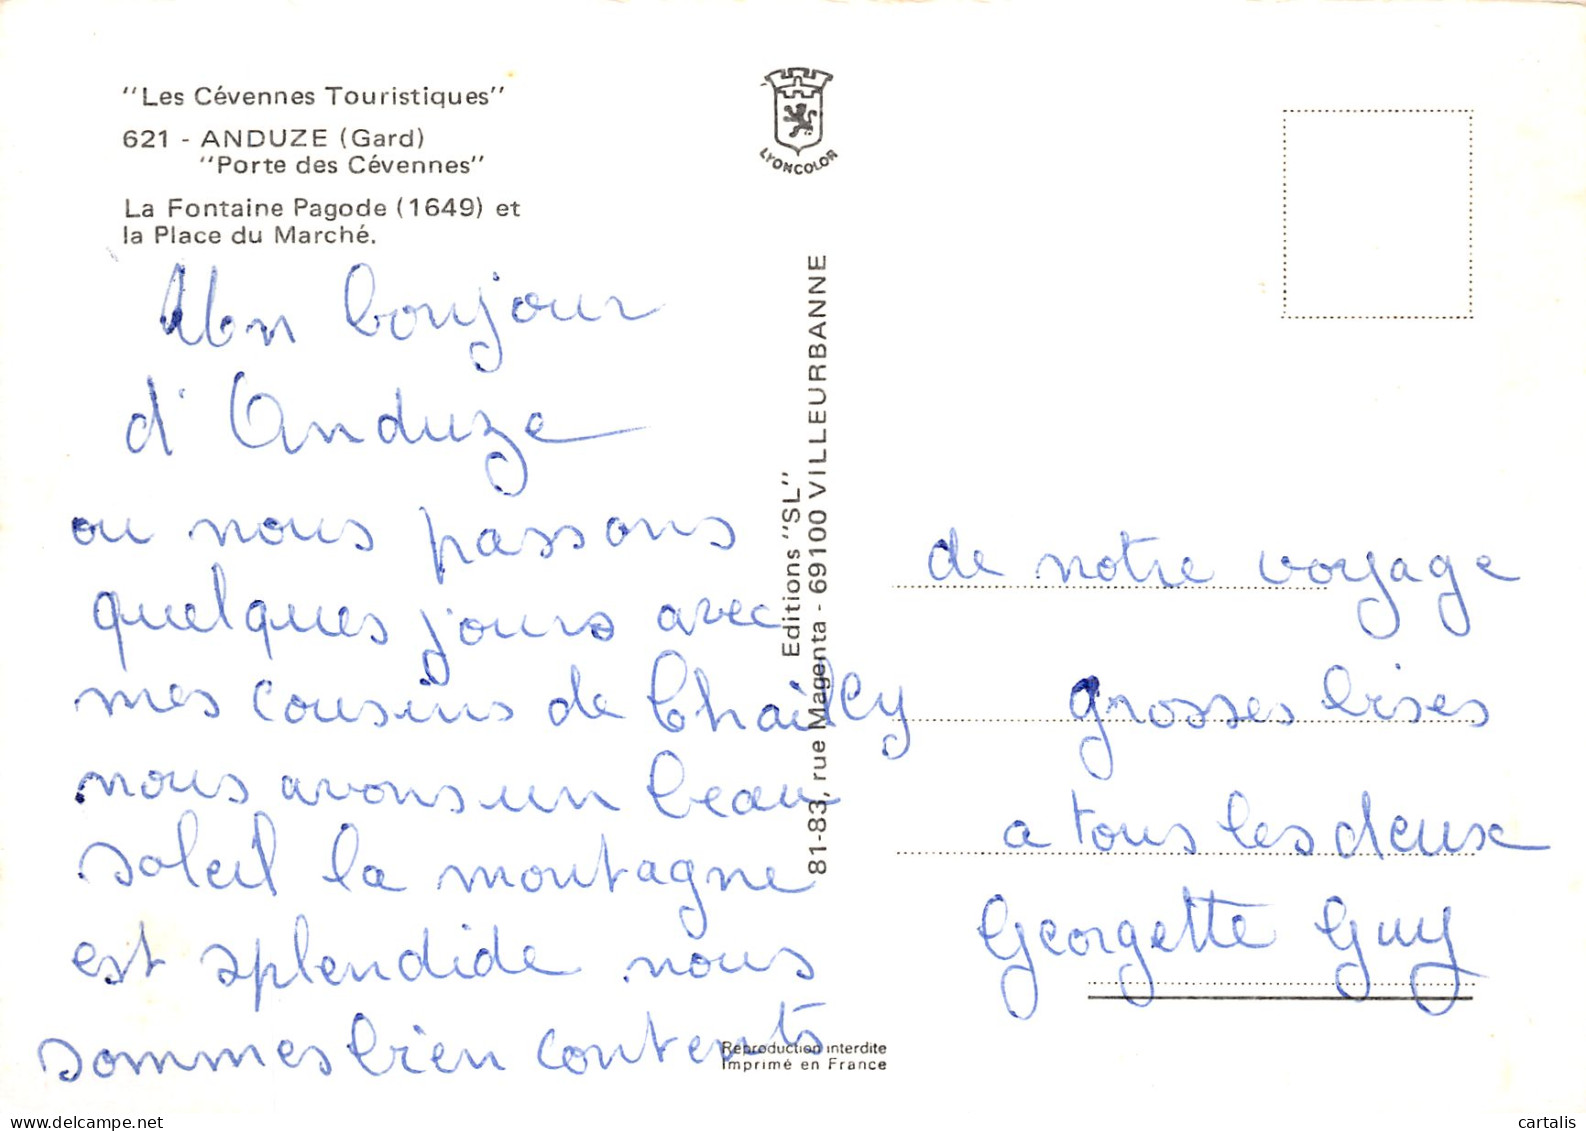 "Les Cévennes Touristiques"
621 - ANDUZE (Gard)
"Porte des Cévennes"
La Fontaine Pagode (1649) et
la Place du Marché.
LYONCOLOR
Editions "SL"
81-83, rue Magenta - 69100 VILLEURBANNE
Mon bonjour
d'Anduze
ou nous passons
quelques jours avec
mes cousins de Chailley
nous avons un beau
soleil la montagne
est splendide nous
sommes bien contents
de notre voyage
grosses bises
a tous les deux
Georgette Guy
Reproduction interdite
Imprimé en France
delcampe.net
cartalis